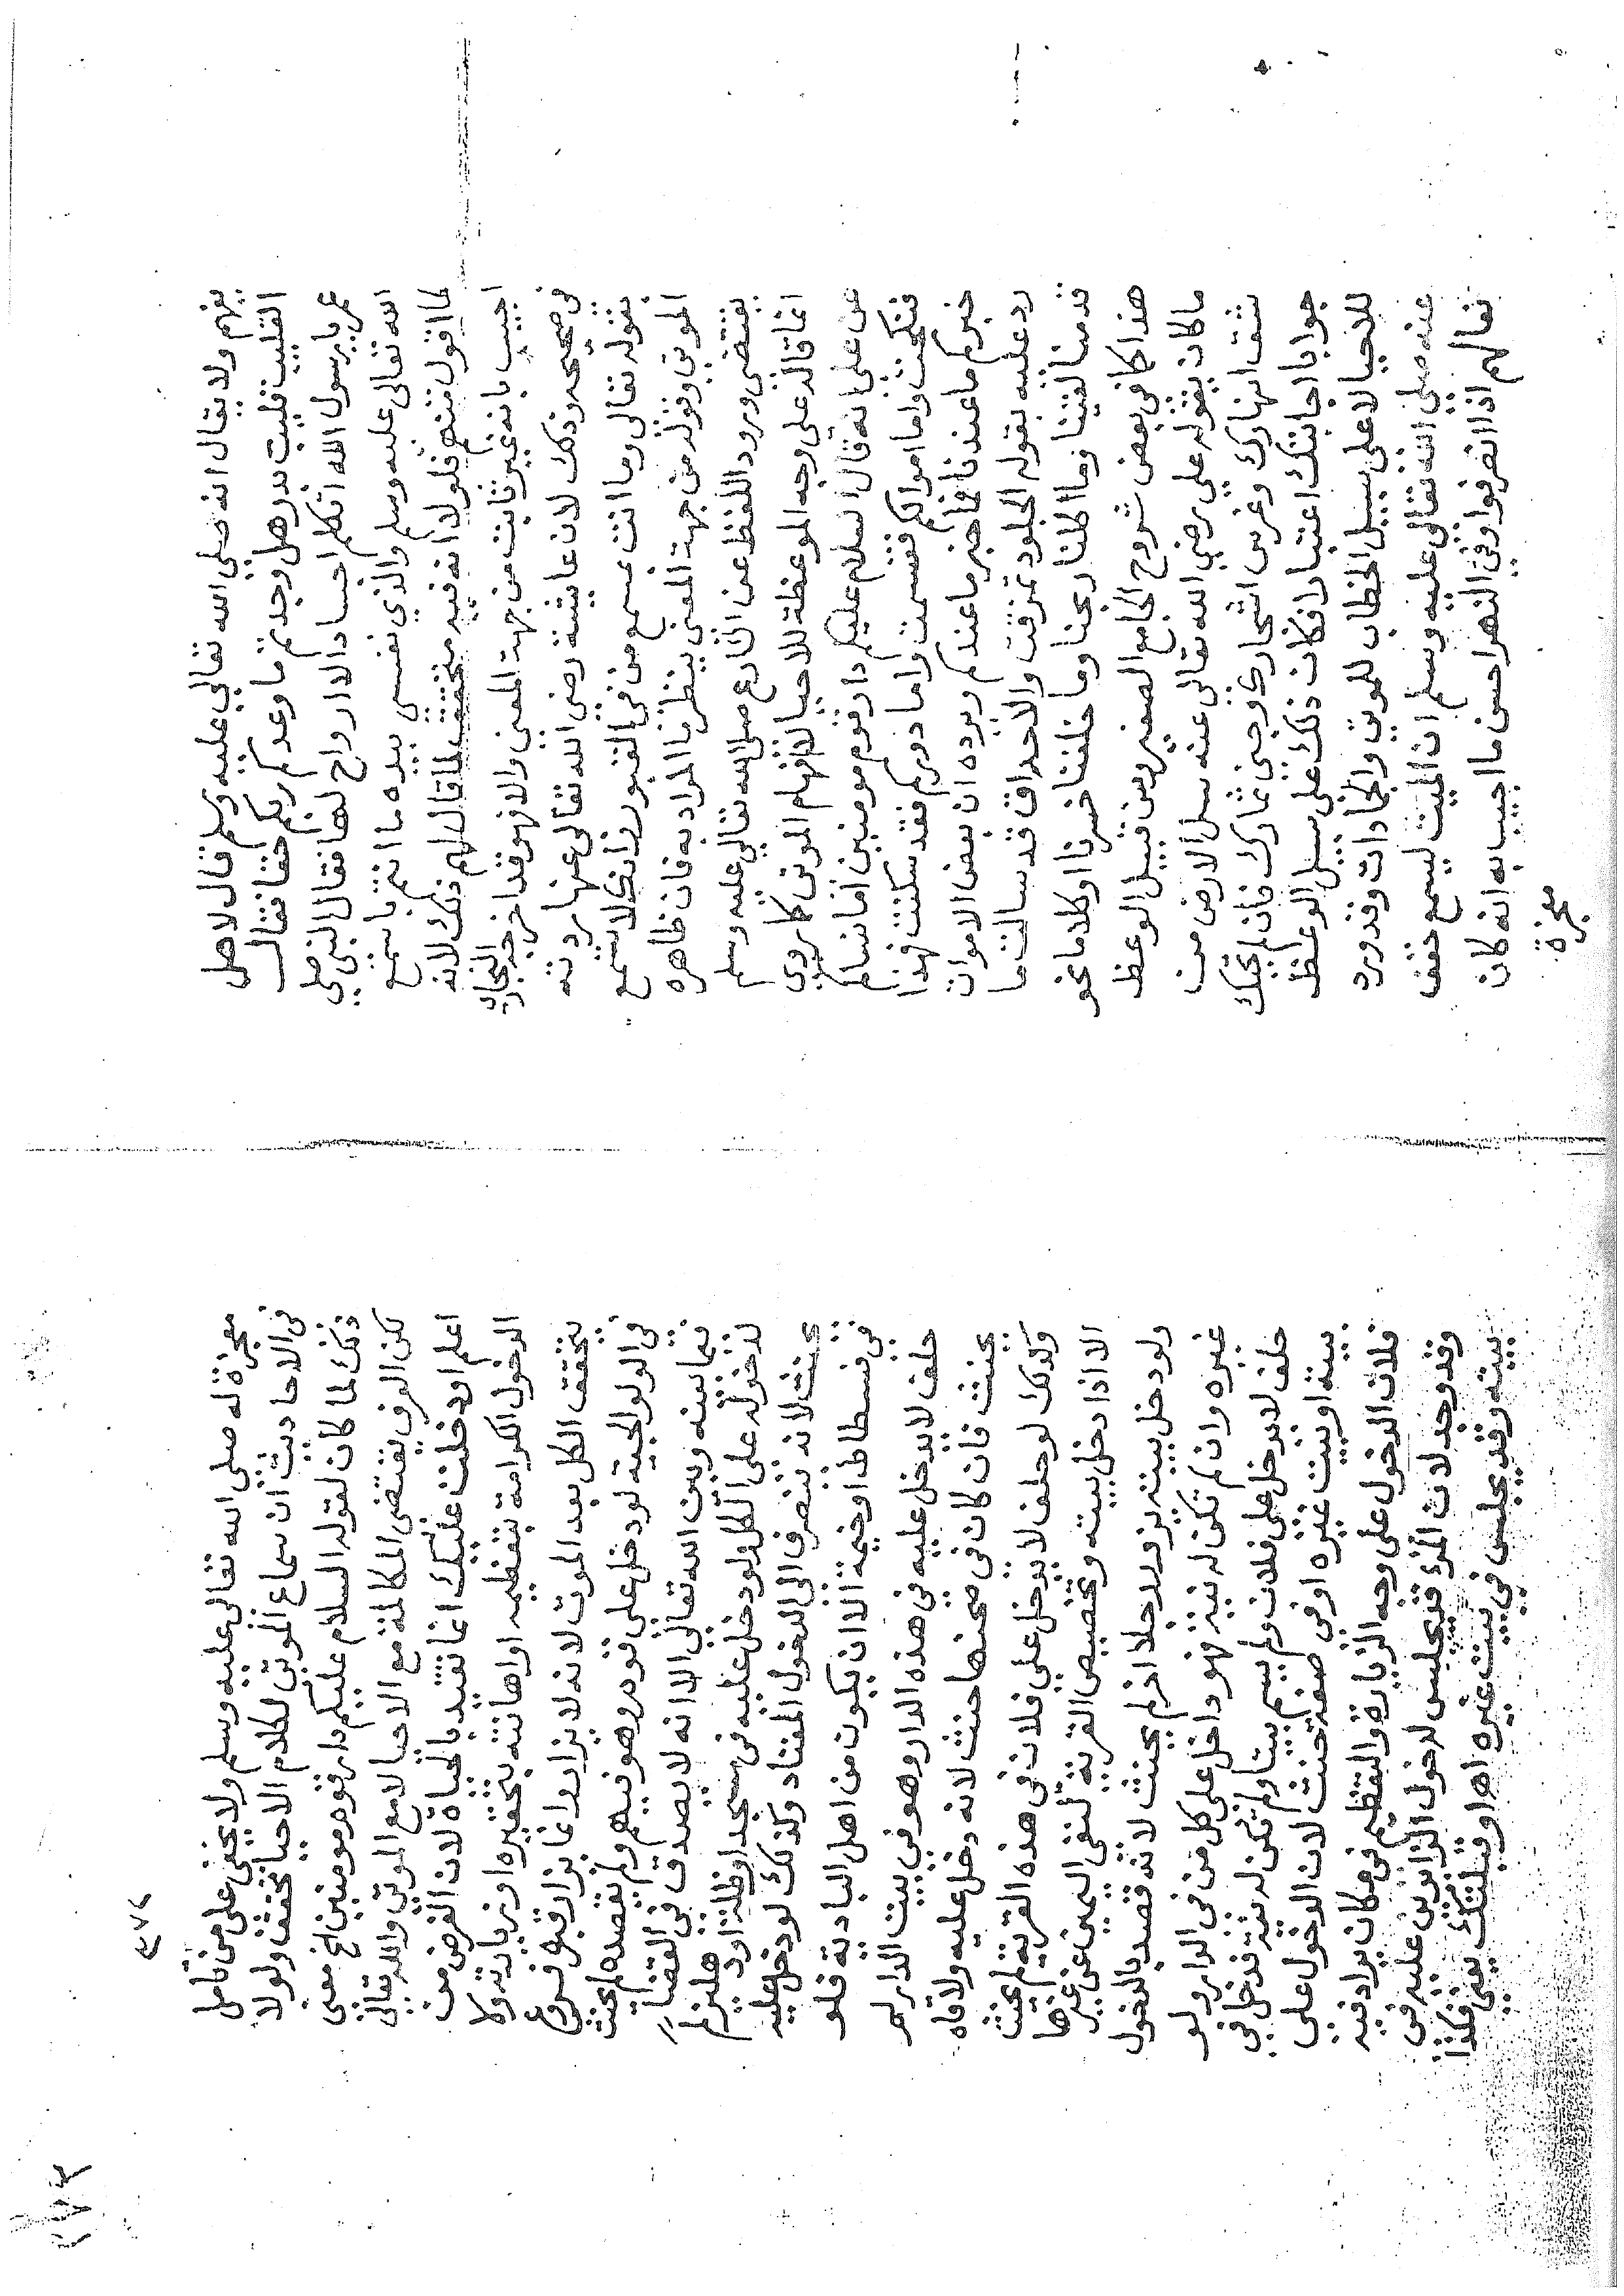 يفهم ولا يقال انه صلى الله تعالى عليه وسلم قال لاهل
القليب قليب بدر هل وجدتم ما وعدكم ربكم حقا فقال
عمر يا رسول الله أتكلم اجسادا لا ارواح لها فقال النبي صلى
الله تعالى عليه وسلم والذي نفسى بيده ما انتم باسمع
لما اقول منهم فلولا انه فيد متحقق لما قال لهم ذلك لانه
اجيب بانه غير ثابت من جهة المعنى والا فهو قد اخرجه البخارى
فى صحيحه وذلك لان عايشة رضى الله تعالى عنها ردته
بقوله تعالى وما انت بمسمع من في القبور انك لا تسمع
الموتى وقوله من جهة المعنى ينظر ما المراد به فان ظاهره
يقتضى ورود اللفظ عن الشارع صلى الله تعالى عليه وسلم
انما قاله على وجه الموعظة للاحيا لا لافهام الموتى كما روى
عن على انه قال السلام عليكم دار قوم مومنين اما نساكم
فنكحت واما اموالكم فقسمت واما دوركم فقد سكنت فهذا
خبركم ما عندنا فما خبر ما عندكم ويرده ان بعض الاموات
رد عليه بقوله الجلود تمزقت والاحداق قد سالت ما
قدمنا لقينا وما اكلنا ربحنا وما خلفنا خسرنا او كلاما نحو
هذا كما فى بعض شروح الجامع الصغير ومن قبيل الوعظ
ما كان يقوله على رضي الله تعالى عنه سل الارض من
شق انهارك وغرس اشجارك وجنى ثمارك فان لم تجبك
جوابا اجابتك اعتبارا فكان ذلك على سبيل الوعظ
للاحيا لا على سبيل الخطاب للموتى والجمادات وقد ورد
عنه صلى الله تعالى عليه وسلم ان الميت ليسمع خفق
نعالهم اذا انصرفوا وفى النهر احسن ما اجيب به انه كان
معجزة
٣٧٤
معجزة له صلى الله تعالى عليه وسلم ولا يخفى على من تامل
فى الاحاديث ان سماع الموتى لكلام الاحيا تحقق ولولا
ذلك لما كان لقوله السلام عليكم دار قوم مومنين الخ معنى
لكن العرف يقتضى المكالمة مع الاحيا لا مع الموتى والله تعالى
اعلم او دخلت عليك انما تقيد بالحياة لان الغرض من
الدخول الكرامة بتعظيمه او اهانته بتحقيره او زيارته ولا
يتحقق الكل بعد الموت لانه لا يزار وانما يزار قبره فروع
فى الولوالجية لو دخل على قوم وهو فيهم ولم يقصده لم يحنث
فيما بينه وبين الله تعالى الا انه لا يصدق في القضاء
لدخوله على الكل ولو دخل عليه فى مسجد او ظلة او دهليز لم
يحنث لانه ينصرف الى الدخول المعتاد وكذلك لو دخل عليه
فى فسطاط او خيمة الا ان يكون من اهل البادية فلو
حلف لا يدخل عليه فى هذه الدار وهو فى بيت الدار لم
يحنث فان كان فى صحنها حنث لانه دخل عليه ولاقاه
وكذلك لو حلف لا يدخل على فلان فى هذه القرية لم يحنث
الا اذا دخل بيته وتخصيص القرية لنفى اليمين عن غيرها
ولو دخل بيته يزور رجلا اخر لم يحنث لانه قصد بالدخول
غيره وان لم تكن له نية فهو داخل على كل من فى الدار ولو
حلف لا يدخل على فلان ولم يسم بيتا ولم تكن له نية فدخل فى
بيته او بيت غيره او فى صفة حنث لان الدخول على
فلان الدخول على وجه الزيارة والتعظيم فى مكان يراد فيه
وقد وجد لان المرؤ قد يجلس لدخول الزائرين عليه فى
بيته وقد يجلس فى بيت غيره اهـ او قبلتك يعنى فكذا